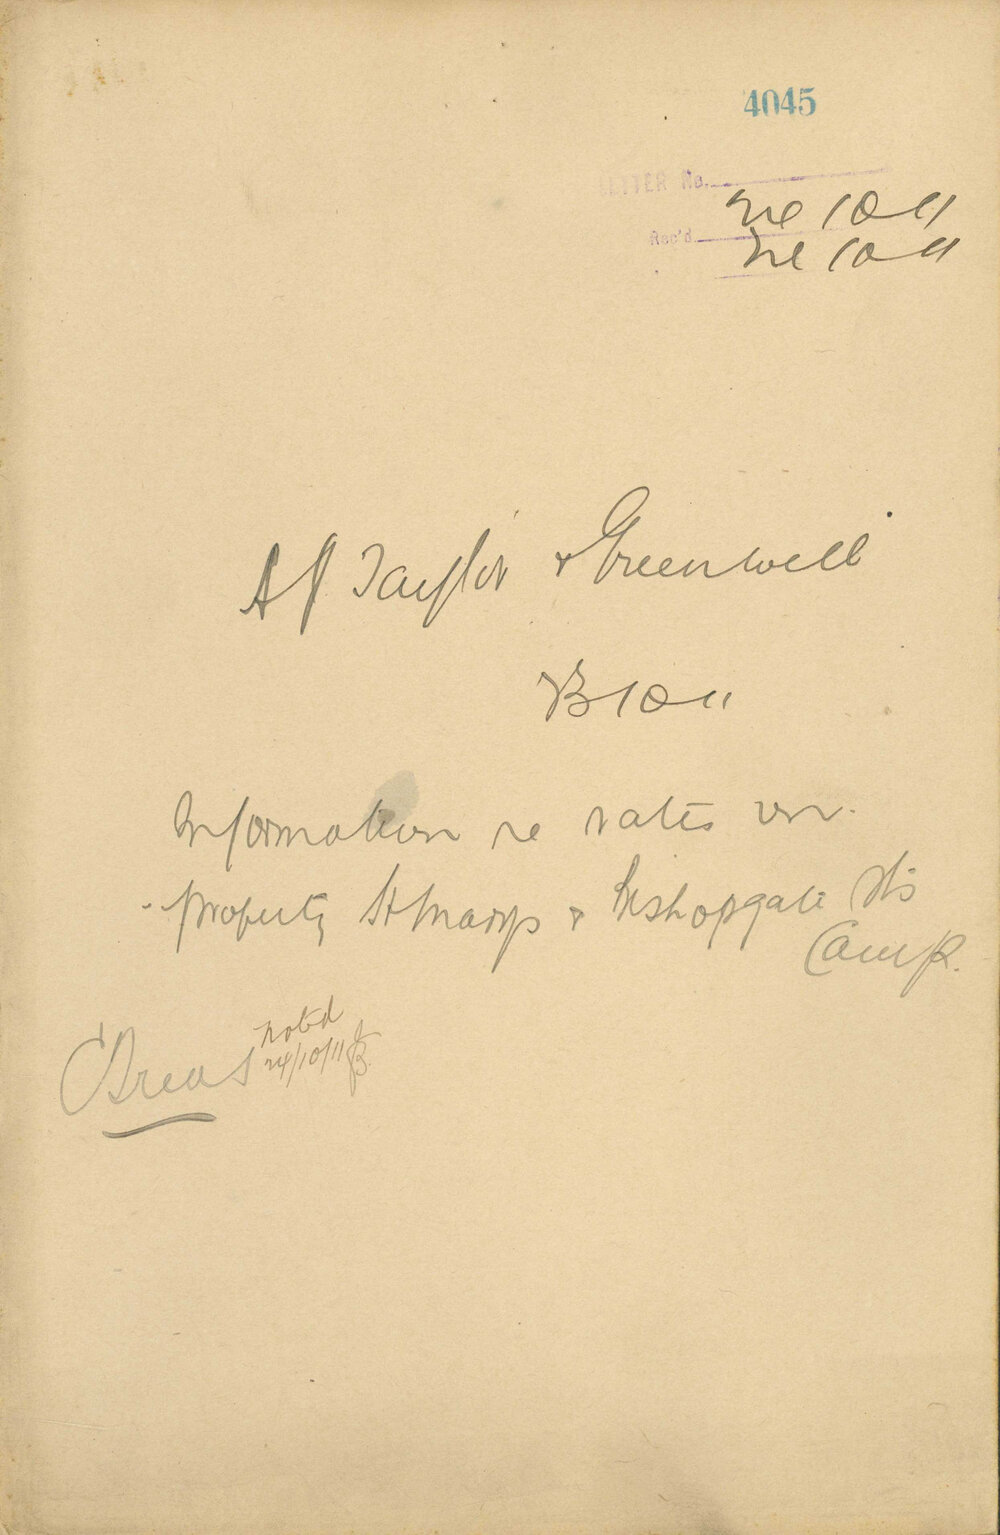 4045
LETTER No.
24 10 11
Rec'd
24 10 11
A J Taylor & Greenwell
23 10 11
Information re rates on
property St Marys & Bishopgate Sts
Camp.
noted
24/10/11